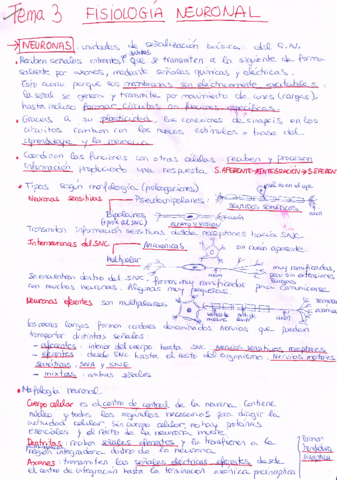 Tema 3 FISIOLOGÍA NEURONAL
→ NEURONAS: unidades de señalización básica del S.N.
• Reciben señales entrantes que se transmiten a la siguiente de forma
saliente por axones, mediante señales químicas y eléctricas.
Esto ocurre porque sus membranas son eléctricamente excitables =
la señal se genera y transmite por movimiento de iones (cargas),
hasta incluso formar circuitos con funciones específicas.
• Gracias a su plasticidad, las conexiones de sinapsis en los
circuitos cambian con los nuevos estímulos = base del
aprendizaje y la memoria
• Coordinan las funciones con otras células: reciben y procesan
información produciendo una respuesta. S. AFERENTE → INTEGRACIÓN → S. EFERENTE
• Tipos según morfología (prolongaciones)
Neuronas sensitivas Pseudounipolares:
sentidos somáticos
Bipolares
olfato y visión
Transmiten información sensitiva desde receptores hacia SNC.
Interneuronas del SNC Anaxónicas
sin axón aparente
Multipolar
axón
muy ramificadas,
pero sin extensiones
largas
Se encuentran dentro del SNC, forma muy ramificada para comunicarse
con muchas neuronas. Algunas muy pequeñas
Neuronas eferentes son multipolares
axón
Los axones largos forman cordones denominados nervios que pueden
transportar distintas señales:
- aferentes: interior del cuerpo hasta SNC.
- eferentes desde SNC hasta el resto del organismo. Nervios motores
- mixtos: ambas señales
• Morfología neuronal
Cuerpo celular es el centro de control de la neurona. Contiene
núcleo y todos los orgánulos necesarios para dirigir la
actividad celular. Sin cuerpo celular no hay proteínas
esenciales y el resto de la neurona muere.
Dendritas: reciben señales aferentes y la transfieren a la
región integradora dentro de la neurona.
Axones: transmiten las señales eléctricas eferentes desde
el centro de integración hasta la terminación axónica presináptica